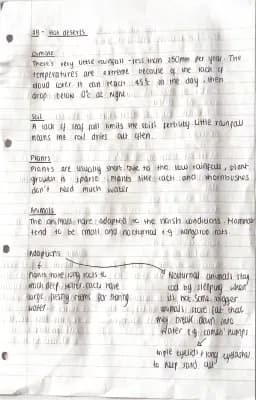 3B - Hot deserts
Climate
There's very little rainfall - less than 250mm per year. The
temperatures are extreme because of the lack of
cloud cover. It can reach 45°c in the day, then
drop below 0°c at night.
Soil
A lack of leaf fall limits the soils fertility. Little rainfall
means the soil dries out often.
Plants
Plants are usually short due to the low rainfall, plant
growth is sparse. Plants like cacti and thornbushes
don't need much water
Animals
The animals have adapted to the harsh conditions. Mammals
tend to be small and nocturnal e.g kangaroo rats.
Adaptions
Plants have long roots to
reach deep water. Cacti have
large, fleshy stems for storing
water
Nocturnal animals stay
cool by sleeping when
its hot. Some bigger
animals store fat that
they break down into
water e.g camels' humps
Triple eyelids / long eyelashes
to keep sand out